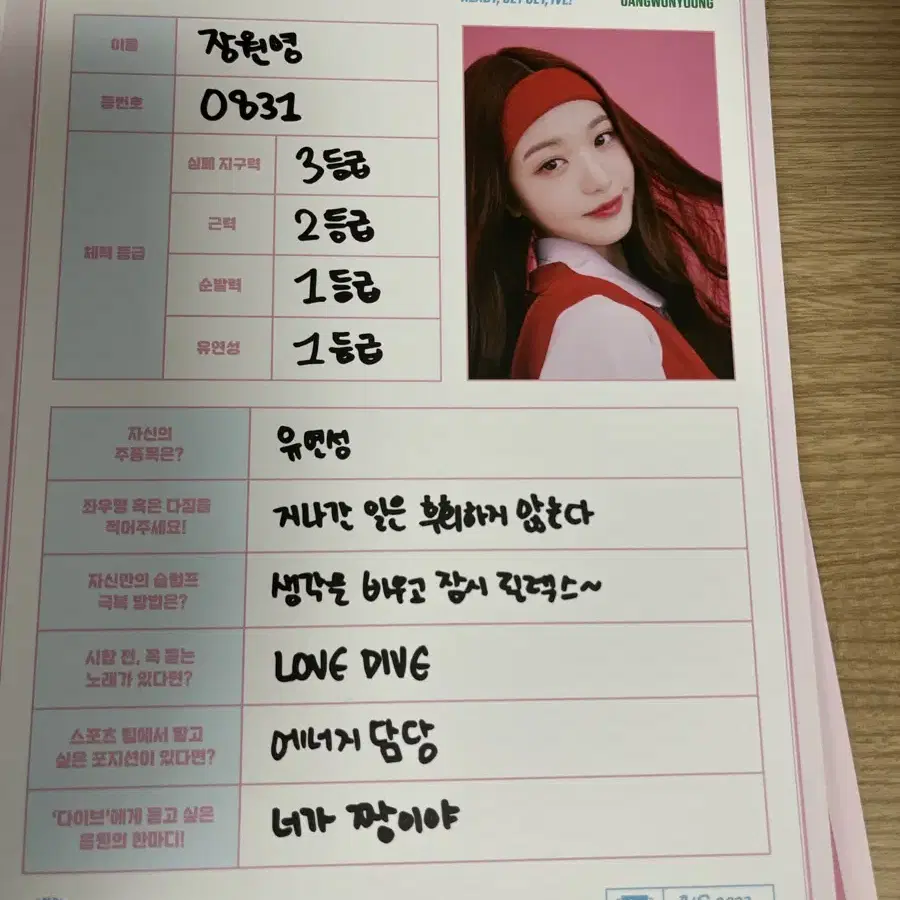 READY, SET GET, IVE!
JANGWONYOUNG
이름
장원영
등번호
0831
체력 등급
심폐 지구력
3등급
근력
2등급
순발력
1등급
유연성
1등급
자신의
주종목은?
유연성
좌우명 혹은 다짐을
적어주세요!
지나간 일은 후회하지 않는다
자신만의 슬럼프
극복 방법은?
생각을 비우고 잠시 릴렉스~
시합 전, 꼭 듣는
노래가 있다면?
LOVE DIVE
스포츠 팀에서 맡고
싶은 포지션이 있다면?
에너지 담당
'다이브'에게 듣고 싶은
응원의 한마디!
너가 짱이야